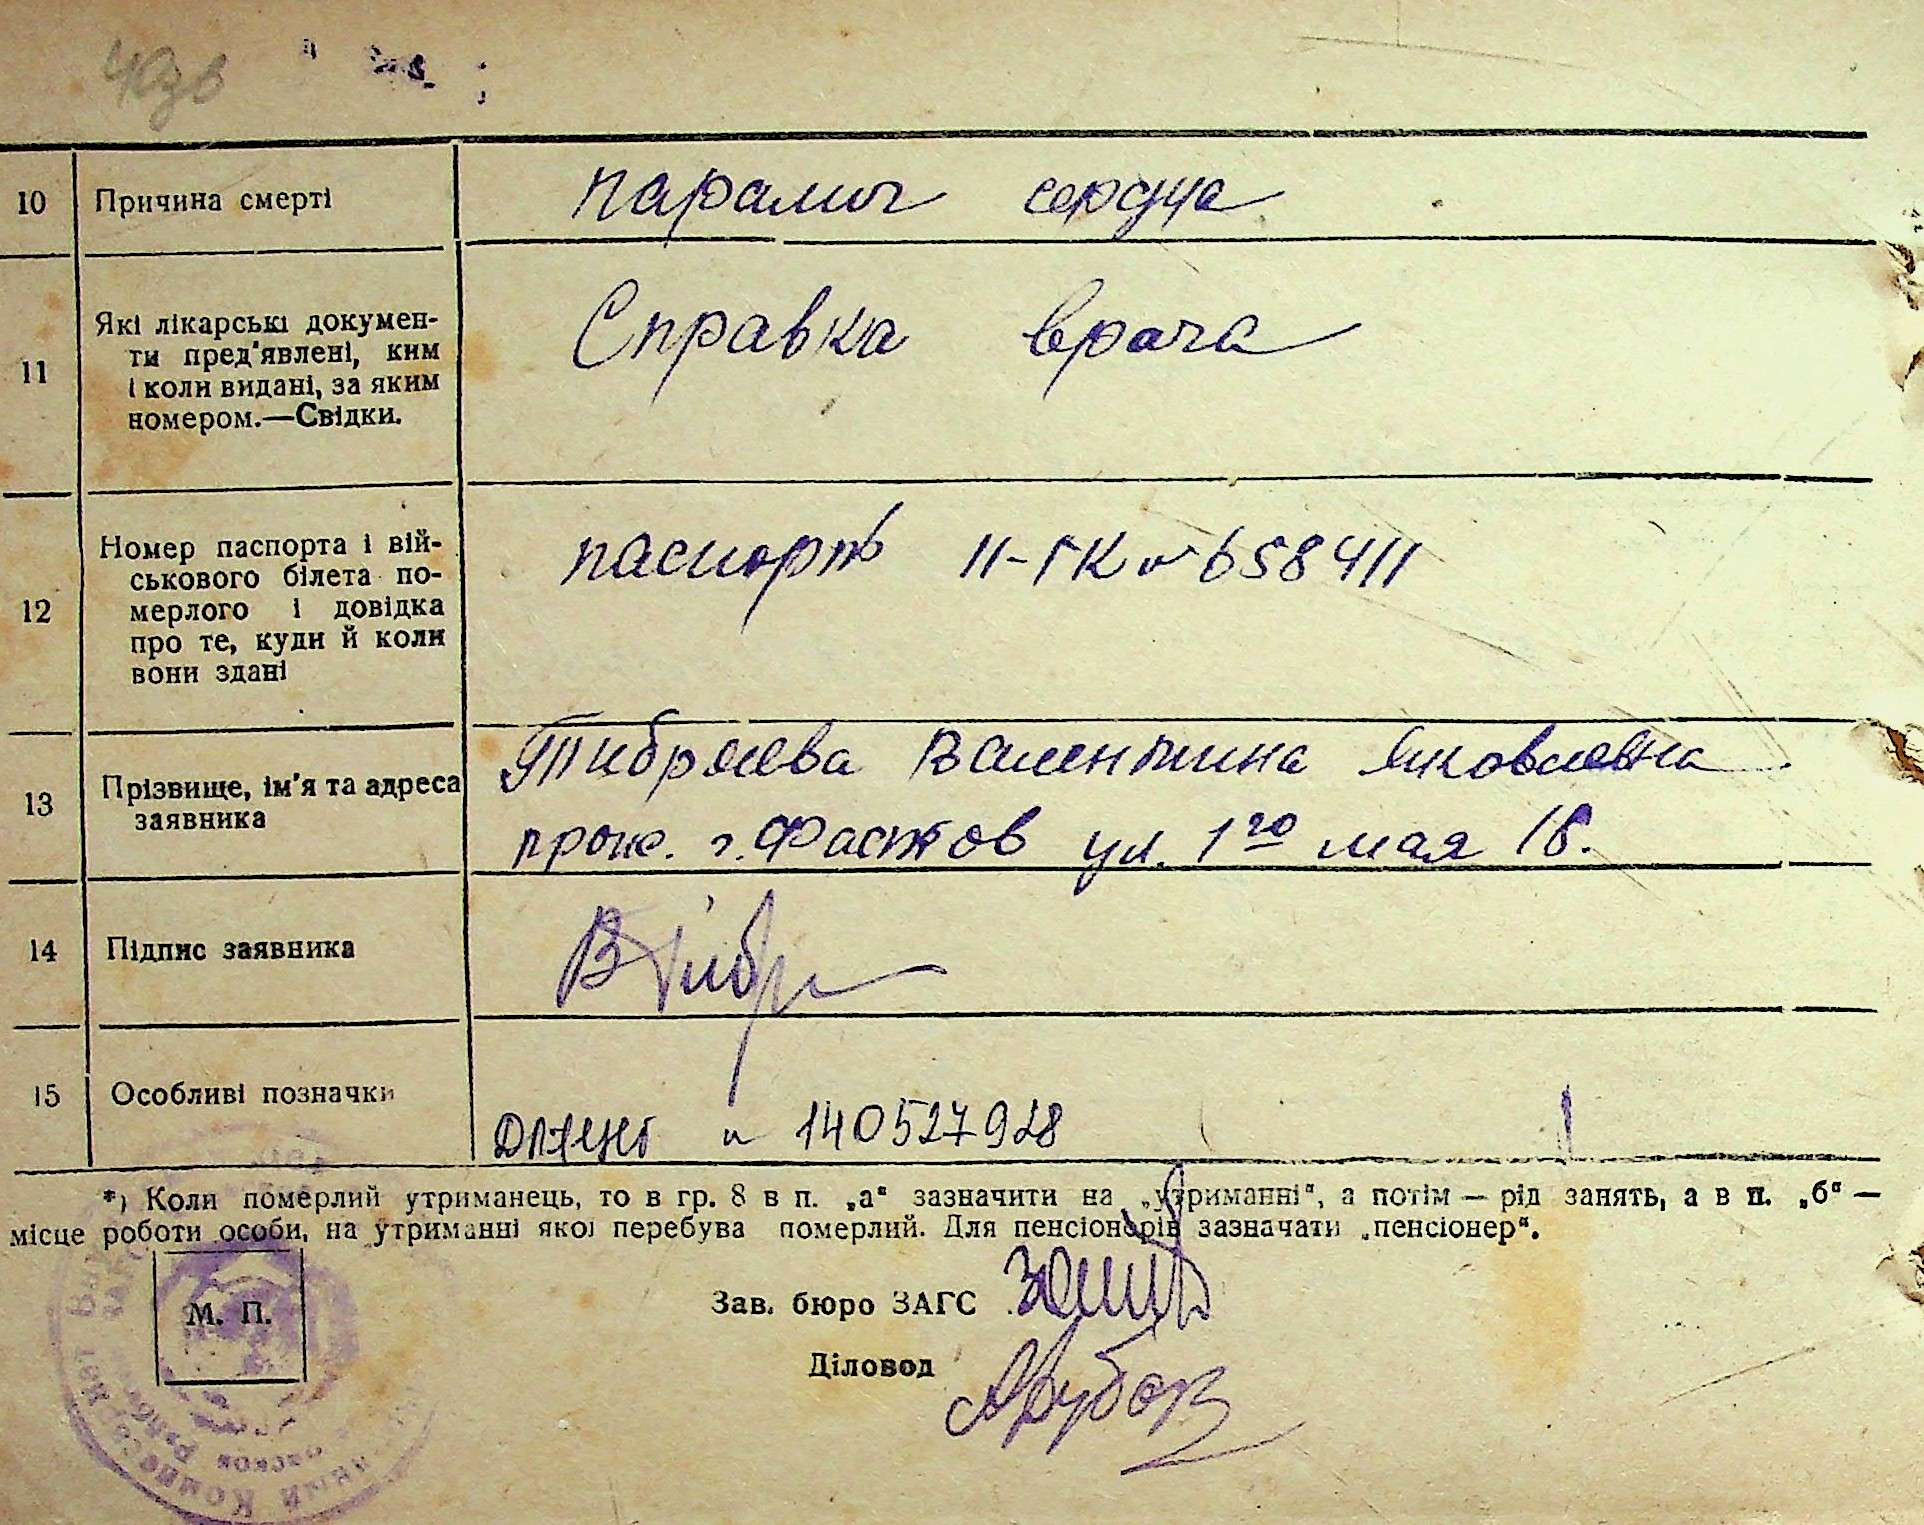 10 Причина смерті паралич сердца
11 Які лікарські докумен-
ти пред'явлені, ким
і коли видані, за яким
номером.—Свідки.
Справка врача
12 Номер паспорта і вій-
ськового білета по-
мерлого і довідка
про те, куди й коли
вони здані
паспорт II-ГК № 658411
13 Прізвище, ім'я та адреса
заявника
Валентина Яковлевна
прож. г. Фастов ул. 1го мая 18.
14 Підпис заявника
15 Особливі позначки
№ 140527928
*) Коли померлий утриманець, то в гр. 8 в п. „а“ зазначити на „утриманні“, а потім — рід занять, а в п. „б“ —
місце роботи особи, на утриманні якої перебува померлий. Для пенсіонерів зазначати „пенсіонер“.
М. П.
Зав. бюро ЗАГС
Діловод